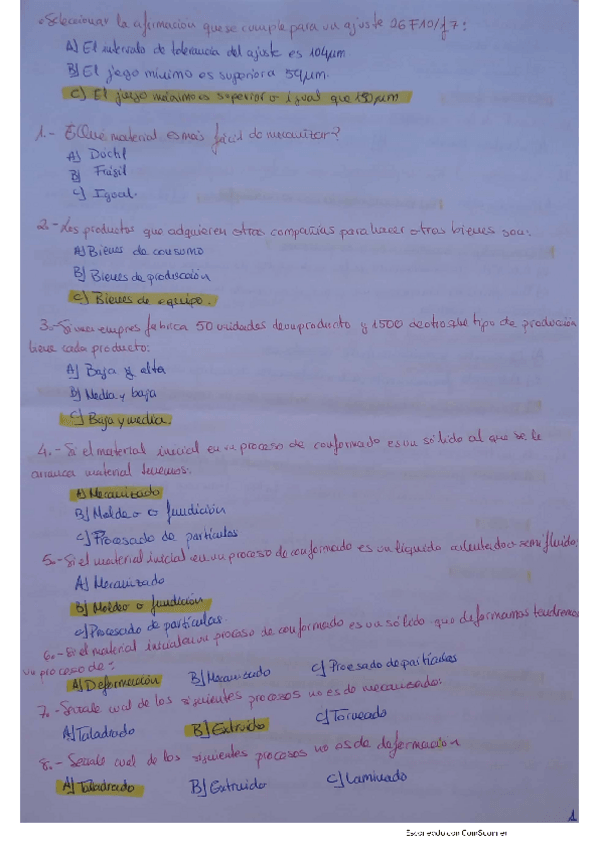 •Seleccionar la afirmación que se cumple para un ajuste 26 F10/f7:
A) El intervalo de tolerancia del ajuste es 104µm
B) El juego mínimo es superior a 59µm.
C) El juego máximo es superior o igual que 150µm
1.- ¿Qué material es más fácil de mecanizar?
A) Dúctil
B) Frágil
C) Igual.
2.- Los productos que adquieren otras compañías para hacer otros bienes son:
A) Bienes de consumo
B) Bienes de producción
C) Bienes de equipo.
3.- Si una empres fabrica 50 unidades de un producto y 1500 de otro qué tipo de producción
tiene cada producto:
A) Baja y alta
B) Media y baja
C) Baja y media.
4.- Si el material inicial en un proceso de conformado es un sólido al que se le
arranca material tenemos:
A) Mecanizado
B) Moldeo o fundición
C) Procesado de partículas
5.- Si el material inicial en un proceso de conformado es un líquido calentado o semifluido:
A) Mecanizado
B) Moldeo o fundición
C) Procesado de partículas.
6.- Si el material inicial en un proceso de conformado es un sólido que deformamos tendremos
un proceso de:
A) Deformación B) Mecanizado C) Procesado de partículas
7.- Señale cual de los siguientes procesos no es de mecanizado:
A) Taladrado B) Extruido C) Torneado
8.- Señale cual de los siguientes procesos no es de deformación
A) Taladrado B) Extruido C) Laminado
1
Escaneado con CamScanner